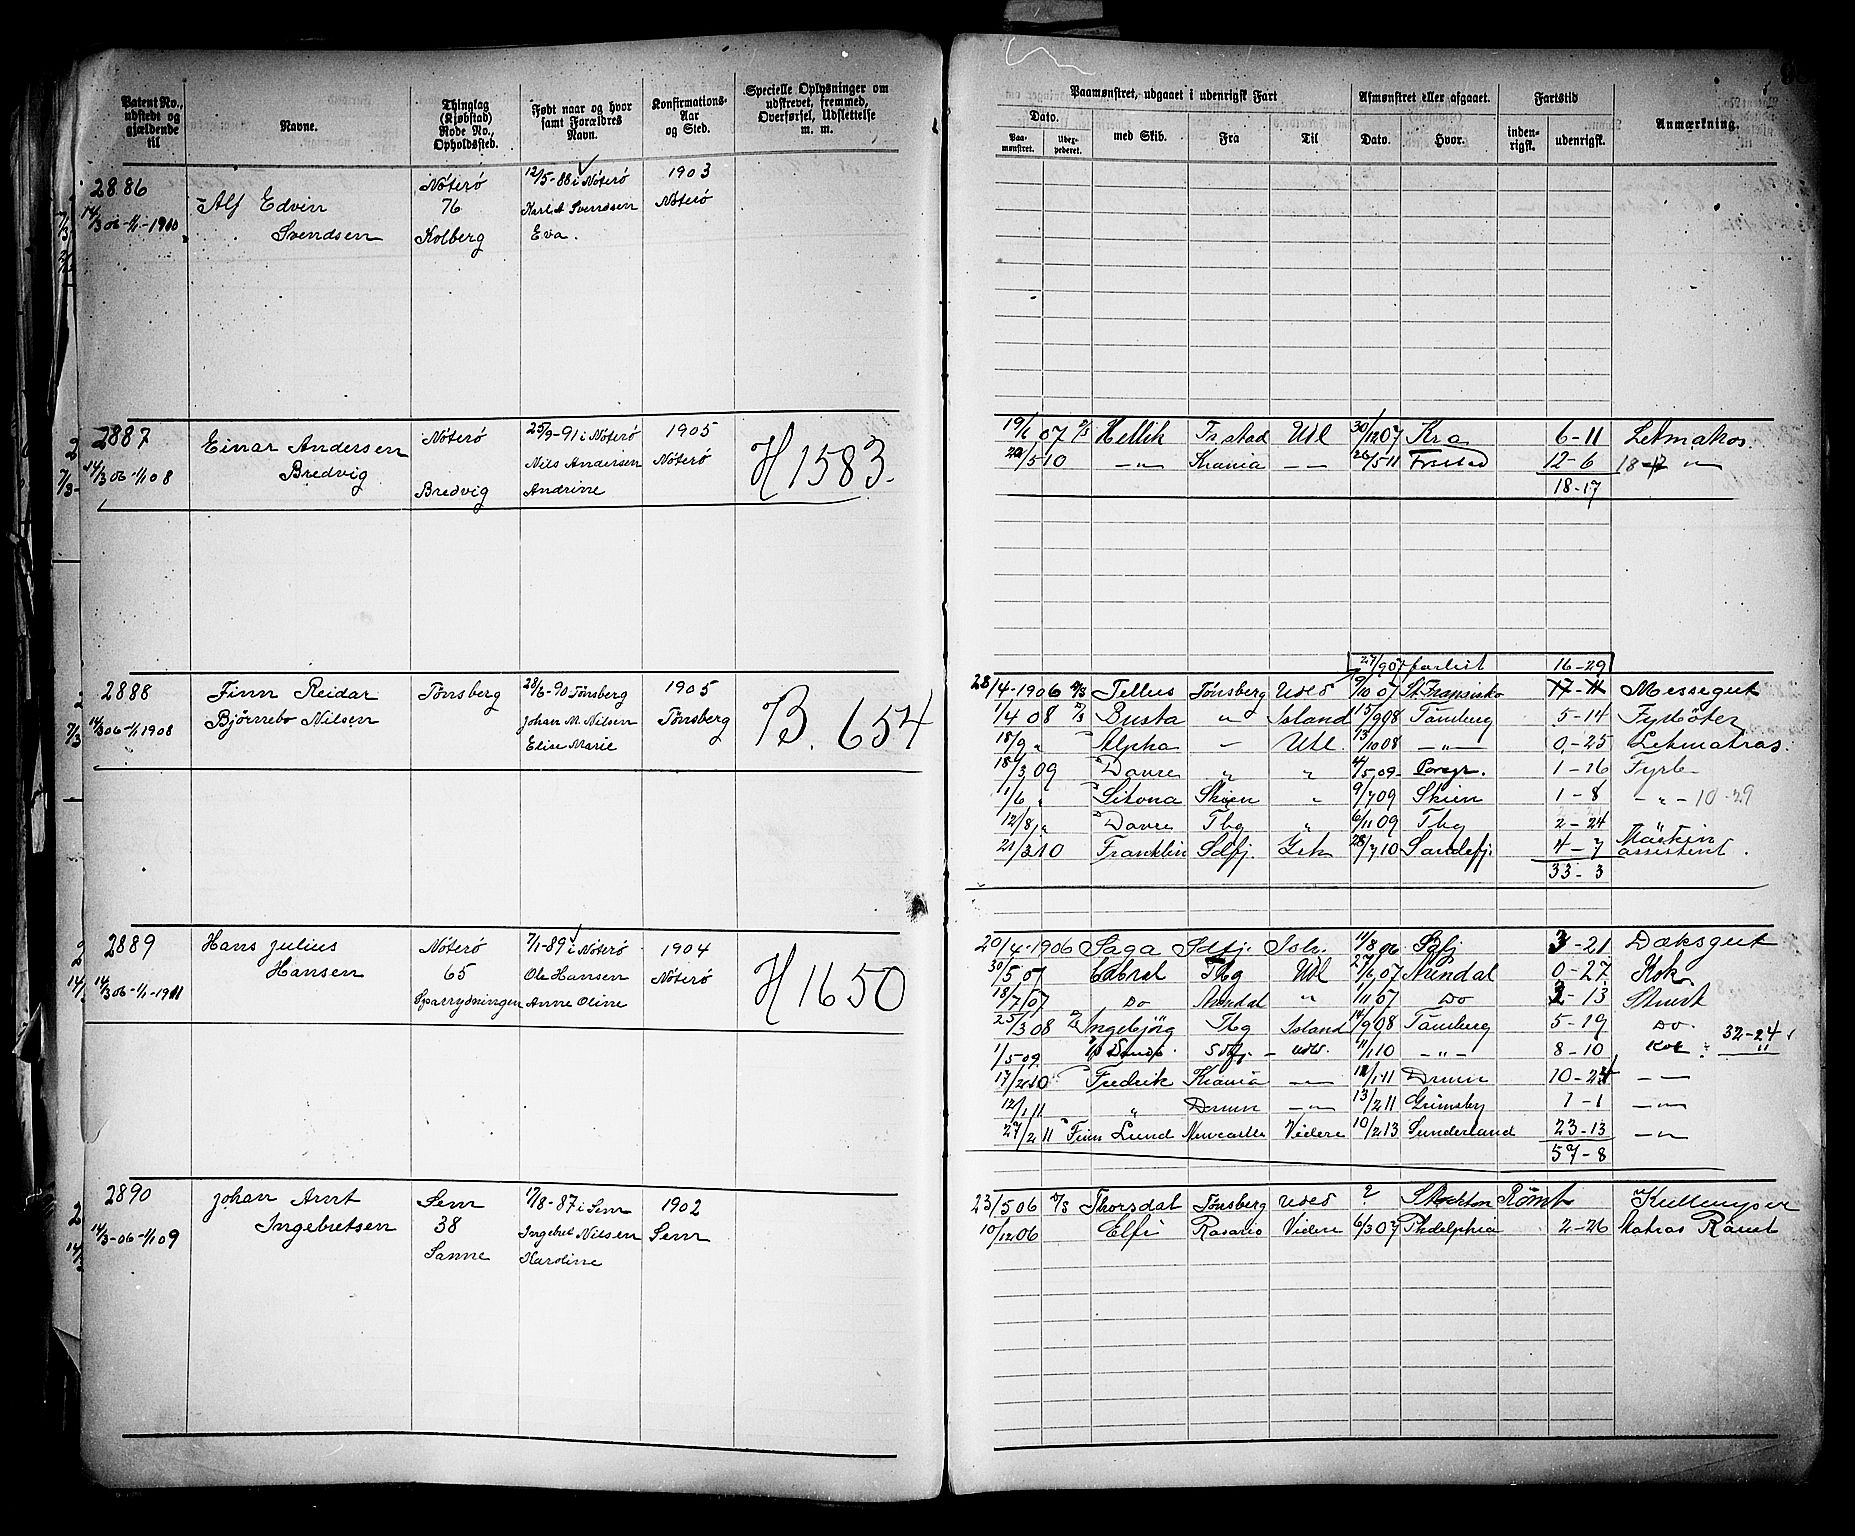 Patent No., udstedt og gjældende til
Navne.
Thinglag (Kjøbstad) Rode No., Opholdssted.
Født naar og hvor samt Forældres Navn.
Konfirmations-Aar og Sted.
Specielle Oplysninger om udskrevet, fremmed, Overførsel, Udslettelse m. m.
2886
14/3 06-1/1-1910
Alf Edvin
Svendsen
Nøterø
76
Kolberg
12/5-88 i Nøterø
Karl A Svendsen
Eva.
1903
Nøterø
2887
14/3 06-1/1 08
Einar Andersen
Bredvig
Nøterø
Bredvig
25/9-91 i Nøterø
Nils Andersen
Andrine
1905
Nøterø
H 1583.
2888
14/3 06-1/1 1908
Finn Reidar
Bjørnebo Nilsen
Tønsberg
28/6-90 Tønsberg
Johan M. Nilsen
Elise Marie
1905
Tønsberg
B. 654
2889
14/3 06-1/1-1911
Hans Julius
Hansen
Nøterø
65
Sparrydningen
7/1-89 i Nøterø
Ole Hansen
Anne Oline
1904
Nøterø
H 1650
2890
14/3-06-1/1 09
Johan Arnt
Ingebretsen
Sem
38
Sanne
17/8-87 i Sem
Ingebret Nilsen
Kardine
1902
Sem
Paamønstret, udgaaet i udenrigsk Fart
Afmønstret eller afgaaet.
Fartstid
Anmærkning.
Dato.
Paa-mønstret.
Uder-pederet.
med Skib.
Fra
Til
Dato.
Hvor.
inden-rigsk.
udenrigsk.
19/6 07 Hellik Frstad Udl 30/12 07 Kra 6-11 Letmatros
22/5 10 -"- Krania -"- 26/5 11 Frstad 12-6 18-17 -"-
18-17
27/9 07 forlist 16-29
28/4-1906 Tellus Tønsberg Udld 9/10 07 St. Fransisko 17-11 Messegut
1/4 08 Busta " Island 15/9 08 Tønsberg 5-14 Fyrbøter
18/9 " Alpha " Udl. 13/10 08 -"- 0-25 Letmatros.
18/3 09 Davre " " 4/5 09 Porsgr. 1-16 Fyrb
1/6 " Sitona Skien " 9/7 09 Skien 1-8 -"- 10-29
12/8 " Davre Tbg " 6/11 09 Tbg 2-24
21/3 10 Franklin Sdfj. Ish 28/7 10 Sandefj. 4-7 Maskin
assistent.
33-3
20/4-1906 Saga Sdfj. Ish. 11/8 06 Sdfj 3-21 Dæksgut
30/5 07 Cabral Tbg Udl 27/6 07 Arendal 0-27 Kok
18/7 07 Do Arendal " 1/11 07 Do 3-13 Stuert
25/3 08 Ingebjørg Tbg Island 14/9 08 Tønsberg 5-19 Do.
1/5-09 Sdfj. - Udld. 11/1 10 -"- 8-10 Kok 32-24
17/2 10 Fredrik Krania -"- 12/1-11 Drmn 10-24 -"-
12/1 11 " Drmn -"- 13/2 11 Grimsby 1-1 -"-
27/2 11 Finn Lund Newcastle Videre 10/2 13 Sunderland 23-13 -"-
57-8
23/5 06 Thorsdal Tønsberg Udld ? Stockton Rømt Kullemper
10/12 06 Elfi Rosario Videre 6/3 07 Phdelphia 2-26 Matros Rømt